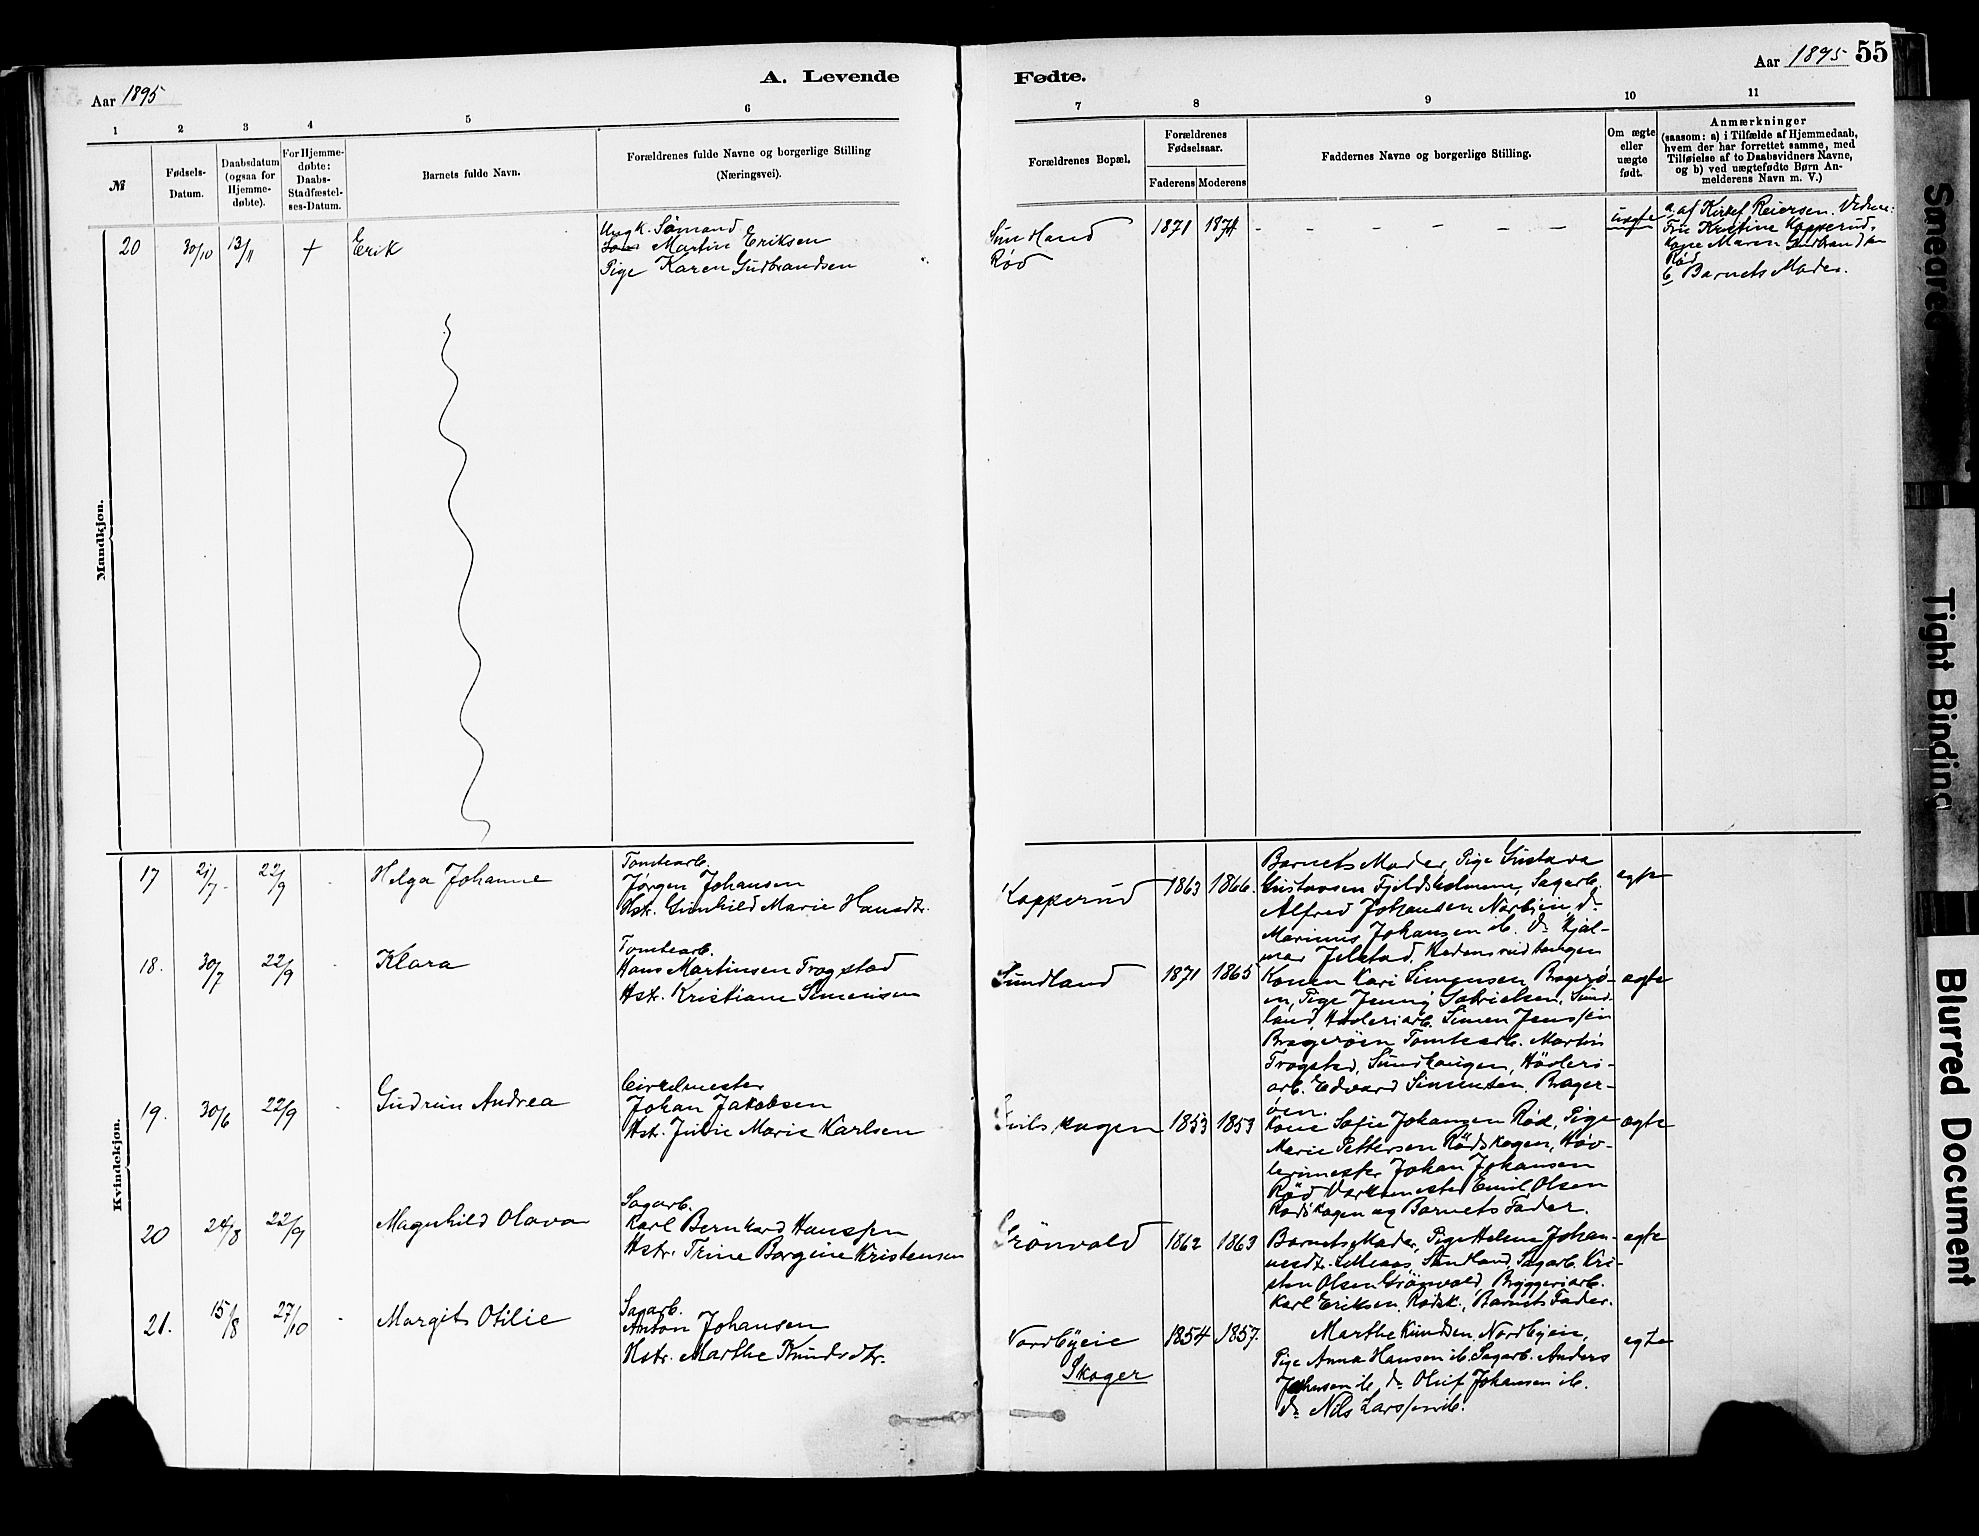 Aar 1895
A. Levende
Fødte.
Aar 1895
55
1
2
3
4
5
6
7
8
9
10
11
№
Fødsels-
Datum.
Daabsdatum
(ogsaa for
Hjemme-
døbte).
For Hjemme-
døbte:
Daabs-
Stadfæstel-
ses-Datum.
Barnets fulde Navn.
Forældrenes fulde Navne og borgerlige Stilling
(Næringsvei).
Forældrenes Bopæl.
Forældrenes
Fødselsaar.
Faderens
Moderens
Faddernes Navne og borgerlige Stilling.
Om ægte
eller
uægte
født.
Anmærkninger
(saasom: a) i Tilfælde af Hjemmedaab,
hvem der har forrettet samme, med
Tilføielse af to Daabsvidners Navne,
og b) ved uægtefødte Børn An-
melderens Navn m. V.)
Mandkjøn.
20
30/10
13/11
+
Erik
Ungk. Sømand
Martin Eriksen
Pige Karen Gudbrandsen
Sundland
Rød
1871
1871
- - - - - -
uægte
a. af Kirkef. Reiersen.
Fru Kristine Kopperud,
Kone Maren Gudbrandsen
Rød
b Barnets Moder.
Kvindekjøn.
17
21/7
22/9
-
Helga Johanne
Tomtearb.
Jørgen Johansen
Hstr. Gunhild Marie Hansdtr.
Kopperud
1863
1866.
Barnets Moder, Pige Gustava
Gustavsen Fjeldsholmene, Sagarb.
Alfred Johansen Norbyeie, do
Marinus Johansen ib. do Hjal-
mar Jelstad,
egte
18.
30/7
22/9
-
Klara
Tomtearb.
Hans Martinsen Trogstad
Hstr. Kristiane Simensen
Sundland
1871
1865
Konen Kari Simensen, Bragerø-
en, Pige Jenny Gabrielsen, Sund-
land, Høvleriarb. Simen Jenssen
Bragerøen Tomtearb. Martin
Trogstad, Sundhaugen, Høvleri-
arb. Edvard Simensen, Brager-
øen.
ægte
19.
30/6
22/9
-
Gudrun Andrea
Cirkelmester
Johan Jakobsen
Hstr. Julie Marie Karlsen
1853
1853
Kone Sofie Johansen Rød, Pige
Marie Pettersen Rødskogen, Høv-
lerimester Johan Johansen
Rød Værksmester Emil Olsen
Rødskogen og Barnets Fader.
ægte
20
24/8
22/9
Magnhild Olava
Sagarb.
Karl Bernhard Hanssen
Hstr. Trine Borgine Kristensen
Grönvold
1862
1863
Barnets Moder, Pige Helene Johan-
nesdtr. Sundland, Sagarb. Kri-
sten Olsen Grönvold, Bryggeriarb.
Karl Eriksen Rødsk., Barnets Fader.
egte
21.
15/8
27/10
-
Margit Otilie
Sagarb.
Anton Johansen
Hstr. Marthe Knudsdtr.
Nordbyeie
Skoger
1854
1857.
Marthe Knudsen, Nordbyeie,
Pige Anna Hansen ib. Sagarb. Anders
Johansen ib. do Oluf Johansen ib.
do Nils Larssen ib.
egte
Smeared
Tight Binding
Blurred Document